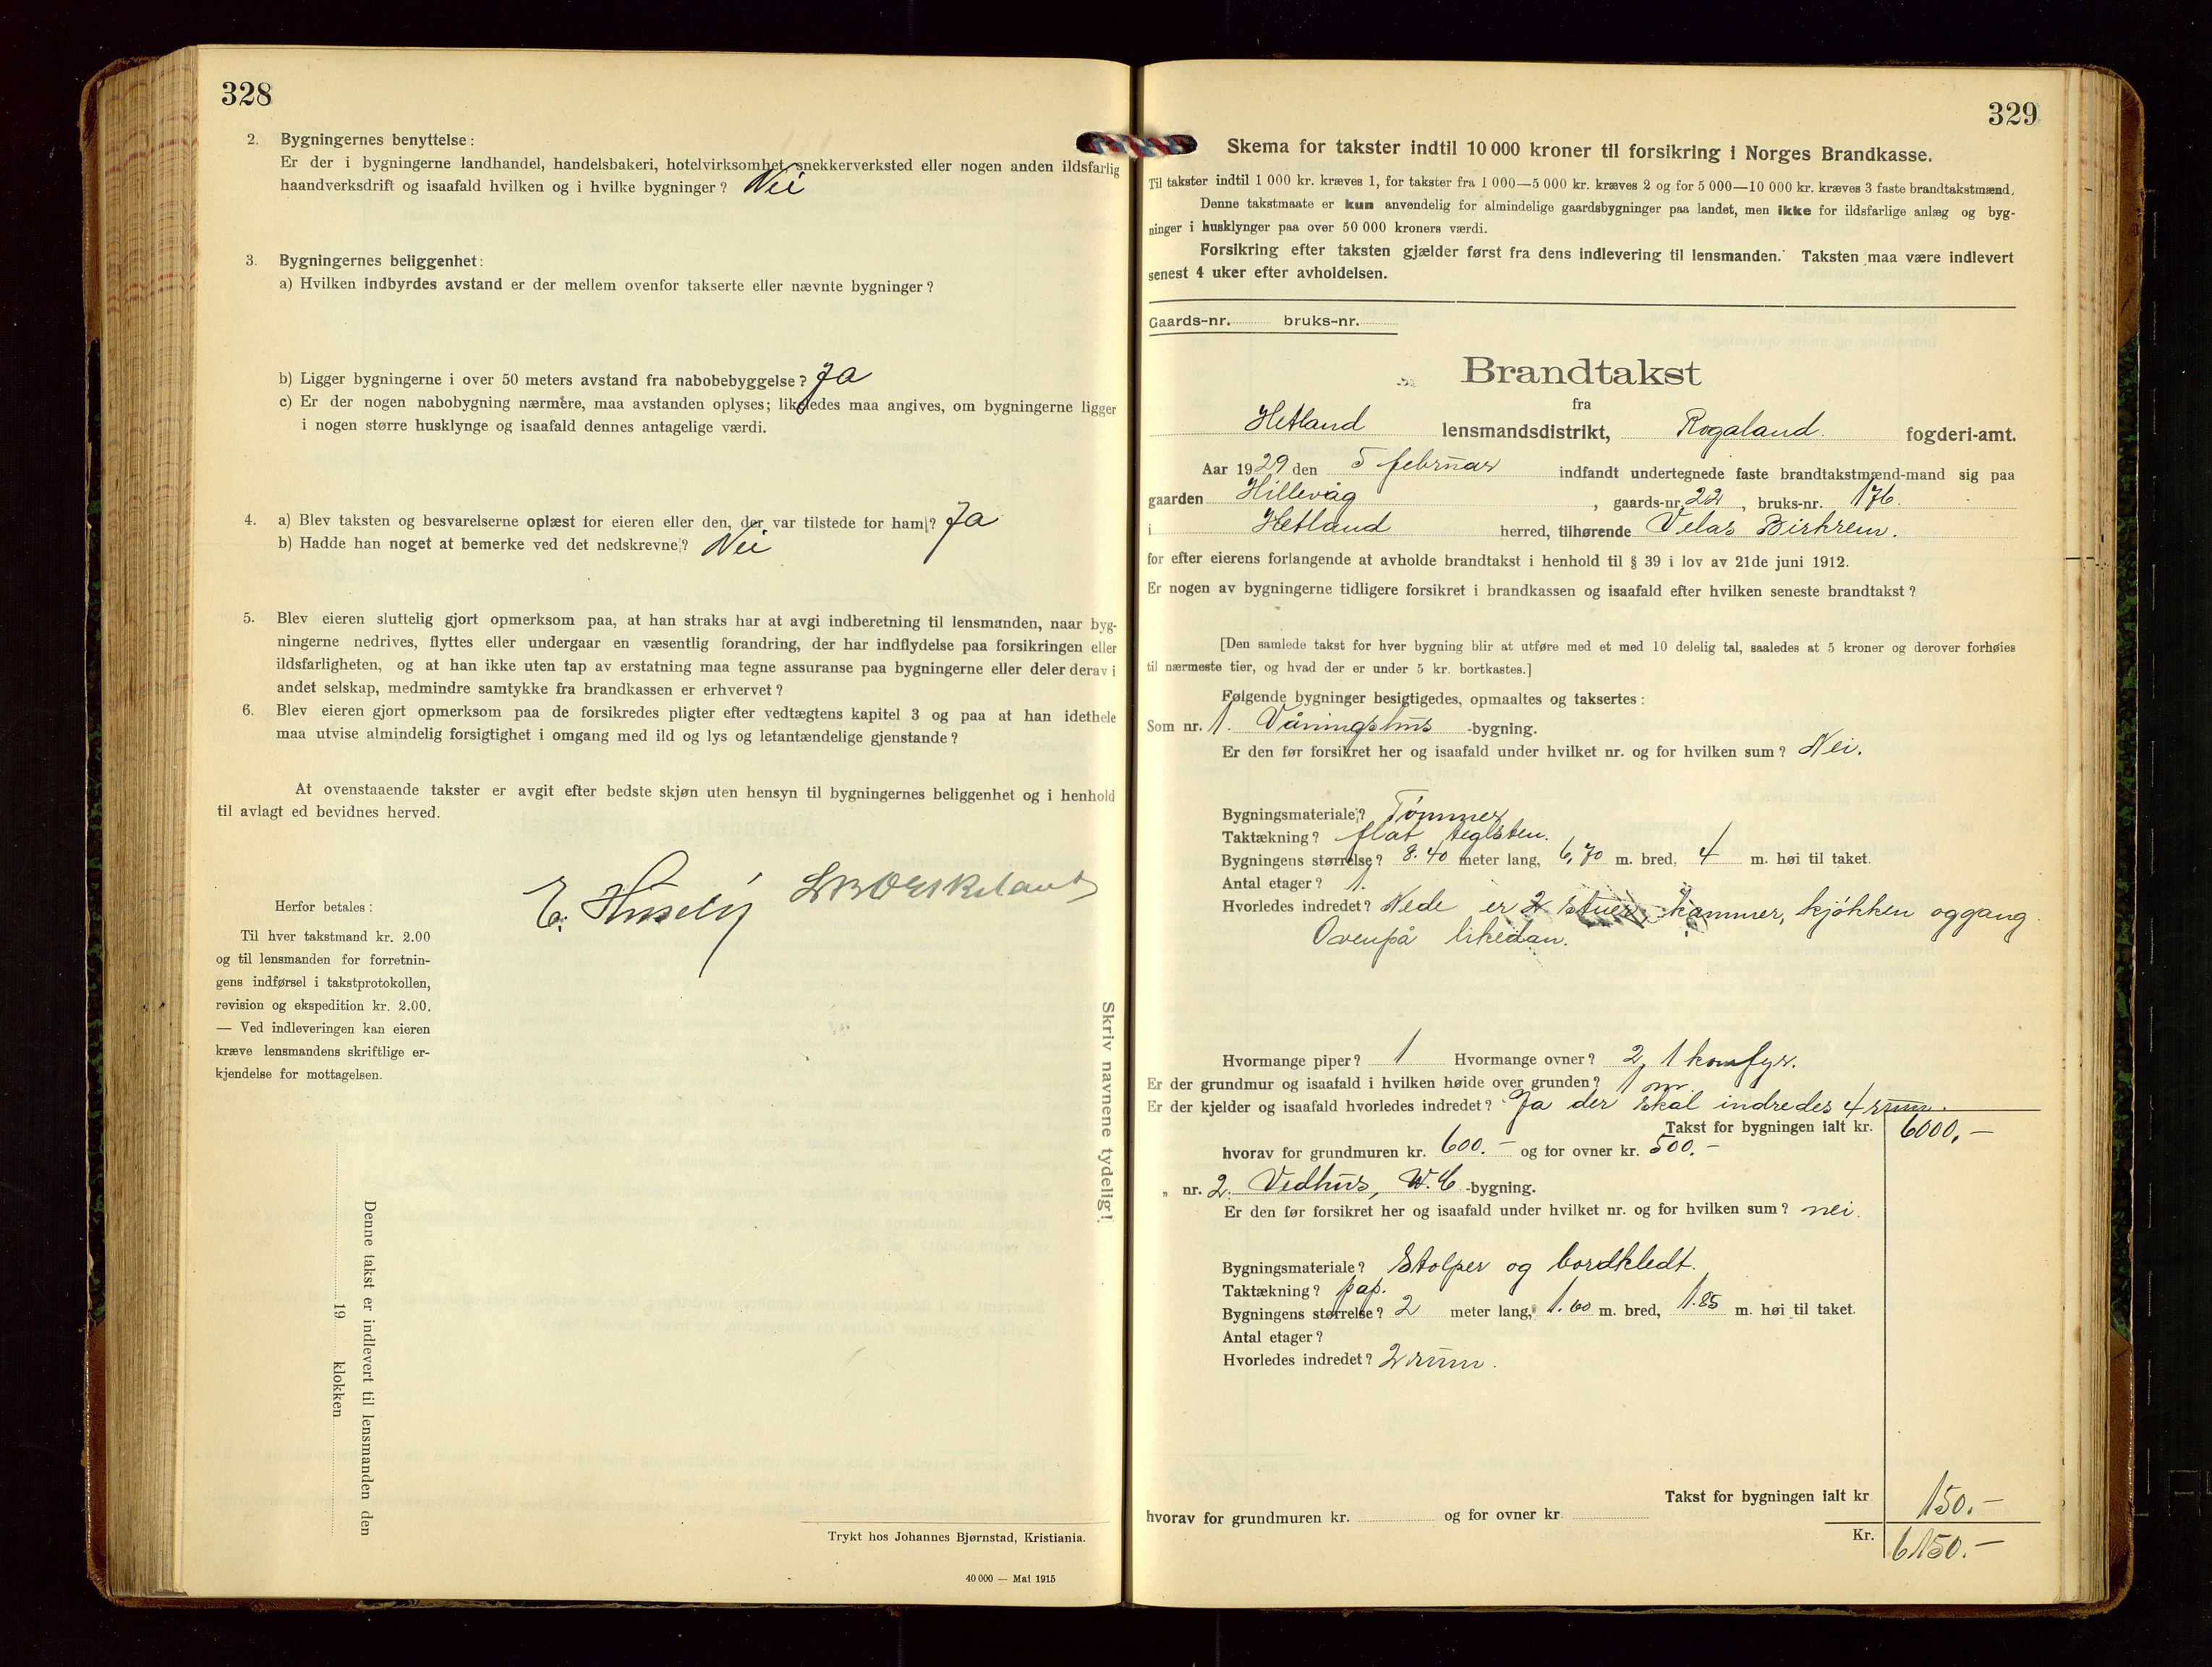 328
2. Bygningernes benyttelse:
Er der i bygningerne landhandel, handelsbakeri, hotelvirksomhet, snekkerverksted eller nogen anden ildsfarlig
haandverksdrift og isaafald hvilken og i hvilke bygninger? Nei
3. Bygningernes beliggenhet:
a) Hvilken indbyrdes avstand er der mellem ovenfor takserte eller nævnte bygninger?
b) Ligger bygningerne i over 50 meters avstand fra nabobebyggelse? Ja
c) Er der nogen nabobygning nærmere, maa avstanden oplyses; likeledes maa angives, om bygningerne ligger
i nogen større husklynge og isaafald dennes antagelige værdi.
4. a) Blev taksten og besvarelserne oplæst for eieren eller den, der var tilstede for ham? Ja
b) Hadde han noget at bemerke ved det nedskrevne? Nei
5. Blev eieren sluttelig gjort opmerksom paa, at han straks har at avgi indberetning til lensmanden, naar byg-
ningerne nedrives, flyttes eller undergaar en væsentlig forandring, der har indflydelse paa forsikringen eller
ildsfarligheten, og at han ikke uten tap av erstatning maa tegne assuranse paa bygningerne eller deler derav i
andet selskap, medmindre samtykke fra brandkassen er erhvervet?
6. Blev eieren gjort opmerksom paa de forsikredes pligter efter vedtægtens kapitel 3 og paa at han idethele
maa utvise almindelig forsigtighet i omgang med ild og lys og letantændelige gjenstande?
At ovenstaaende takster er avgit efter bedste skjøn uten hensyn til bygningernes beliggenhet og i henhold
til avlagt ed bevidnes herved.
E. Huseby
Herfor betales:
Til hver takstmand kr. 2.00
og til lensmanden for forretnin-
gens indførsel i takstprotokollen,
revision og ekspedition kr. 2.00.
— Ved indleveringen kan eieren
kræve lensmandens skriftlige er-
kjendelse for mottagelsen.
Skriv navnene tydelig!
Denne takst er indlevert til lensmanden den
19 klokken
Trykt hos Johannes Bjørnstad, Kristiania.
40 000 — Mai 1915
329
Skema for takster indtil 10 000 kroner til forsikring i Norges Brandkasse.
Til takster indtil 1 000 kr. kræves 1, for takster fra 1 000—5 000 kr. kræves 2 og for 5 000—10 000 kr. kræves 3 faste brandtakstmænd.
Denne takstmaate er kun anvendelig for almindelige gaardsbygninger paa landet, men ikke for ildsfarlige anlæg og byg-
ninger i husklynger paa over 50 000 kroners værdi.
Forsikring efter taksten gjælder først fra dens indlevering til lensmanden. Taksten maa være indlevert
senest 4 uker efter avholdelsen.
Gaards-nr. bruks-nr.
Brandtakst
fra
Hetland lensmandsdistrikt, Rogaland. fogderi-amt.
Aar 1929 den 5 februar indfandt undertegnede faste brandtakstmænd-mand sig paa
gaarden Hillevåg, gaards-nr. 22, bruks-nr. 176.
i Hetland herred, tilhørende Velas Birkrem.
for efter eierens forlangende at avholde brandtakst i henhold til § 39 i lov av 21de juni 1912.
Er nogen av bygningerne tidligere forsikret i brandkassen og isaafald efter hvilken seneste brandtakst?
[Den samlede takst for hver bygning blir at utføre med et med 10 delelig tal, saaledes at 5 kroner og derover forhøies
til nærmeste tier, og hvad der er under 5 kr. bortkastes.]
Følgende bygninger besigtigedes, opmaaltes og taksertes:
Som nr. 1. Våningshus -bygning.
Er den før forsikret her og isaafald under hvilket nr. og for hvilken sum? Nei.
Bygningsmateriale? Tømmer
Taktækning? flat teglsten.
Bygningens størrelse? 8.40 meter lang, 6,70 m. bred, 4 m. høi til taket.
Antal etager? 1.
Hvorledes indredet? Nede er 2 stuer, kammer, kjøkken og gang.
Ovenpå likedan.
Hvormange piper? 1 Hvormange ovner? 2, 1 komfyr.
Er der grundmur og isaafald i hvilken høide over grunden? 1 m.
Er der kjelder og isaafald hvorledes indredet? Ja der skal indredes 4 rum.
Takst for bygningen ialt kr. 6000,-
hvorav for grundmuren kr. 600.- og for ovner kr. 500.-
„ nr. 2. Vedhus, W.C -bygning.
Er den før forsikret her og isaafald under hvilket nr. og for hvilken sum? nei.
Bygningsmateriale? Stolper og bordkledt.
Taktækning? pap.
Bygningens størrelse? 2 meter lang, 1.60 m. bred, 1.85 m. høi til taket.
Antal etager?
Hvorledes indredet? 2 rum.
Takst for bygningen ialt kr 150.-
hvorav for grundmuren kr. og for ovner kr.
Kr. 6150.-